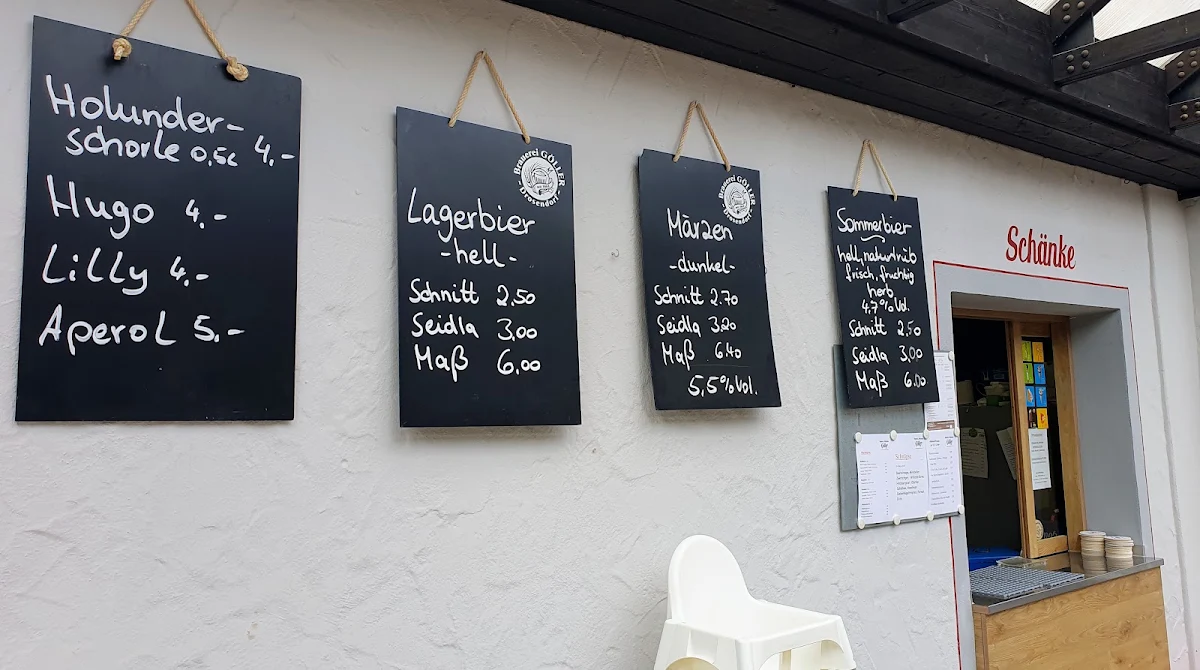 Holunder-
schorle 0,5l 4.-
Hugo 4.-
Lilly 4.-
Aperol 5.-
Brauerei GÖLLER
Drosendorf
Lagerbier
-hell-
Schnitt 2,50
Seidla 3,00
Maß 6,00
Brauerei GÖLLER
Drosendorf
Märzen
-dunkel-
Schnitt 2.70
Seidla 3,20
Maß 6,40
5,5% Vol.
Sommerbier
hell, naturtrüb
frisch, fruchtig
herb
4,7% Vol.
Schnitt 2,50
Seidla 3,00
Maß 6,00
Schänke